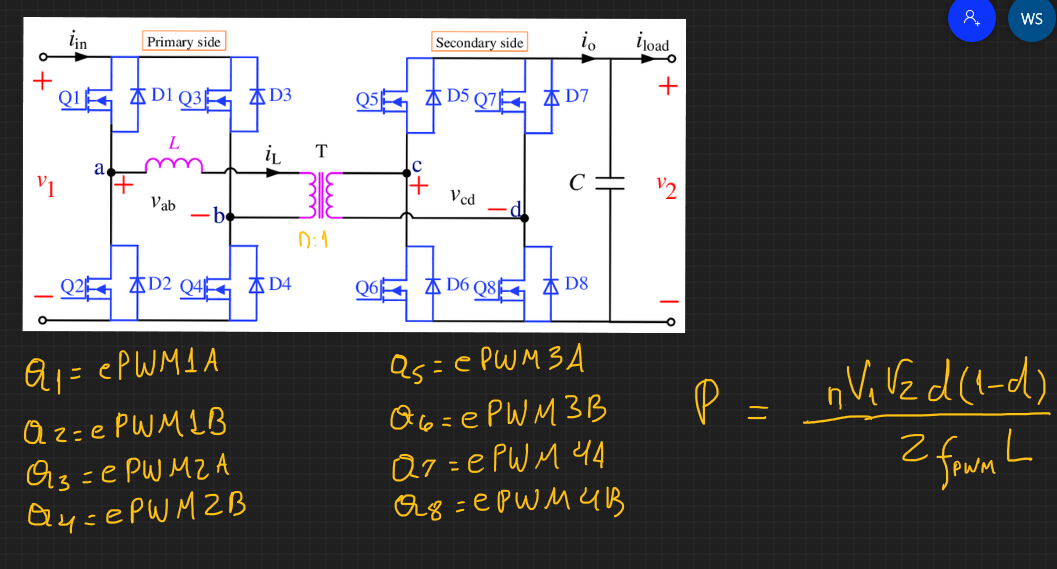 WS
i_in
Primary side
Secondary side
i_o
i_load
+
+
Q1
D1
Q3
D3
Q5
D5
Q7
D7
L
i_L
T
a
c
+
+
v_1
v_ab
v_cd
C
v_2
−
b
−
d
n:1
Q2
D2
Q4
D4
Q6
D6
Q8
D8
−
−
Q1 = ePWM1A
Q2 = ePWM1B
Q3 = ePWM2A
Q4 = ePWM2B
Q5 = ePWM3A
Q6 = ePWM3B
Q7 = ePWM4A
Q8 = ePWM4B
P = nV1V2d(1-d)
2 f_PWM L